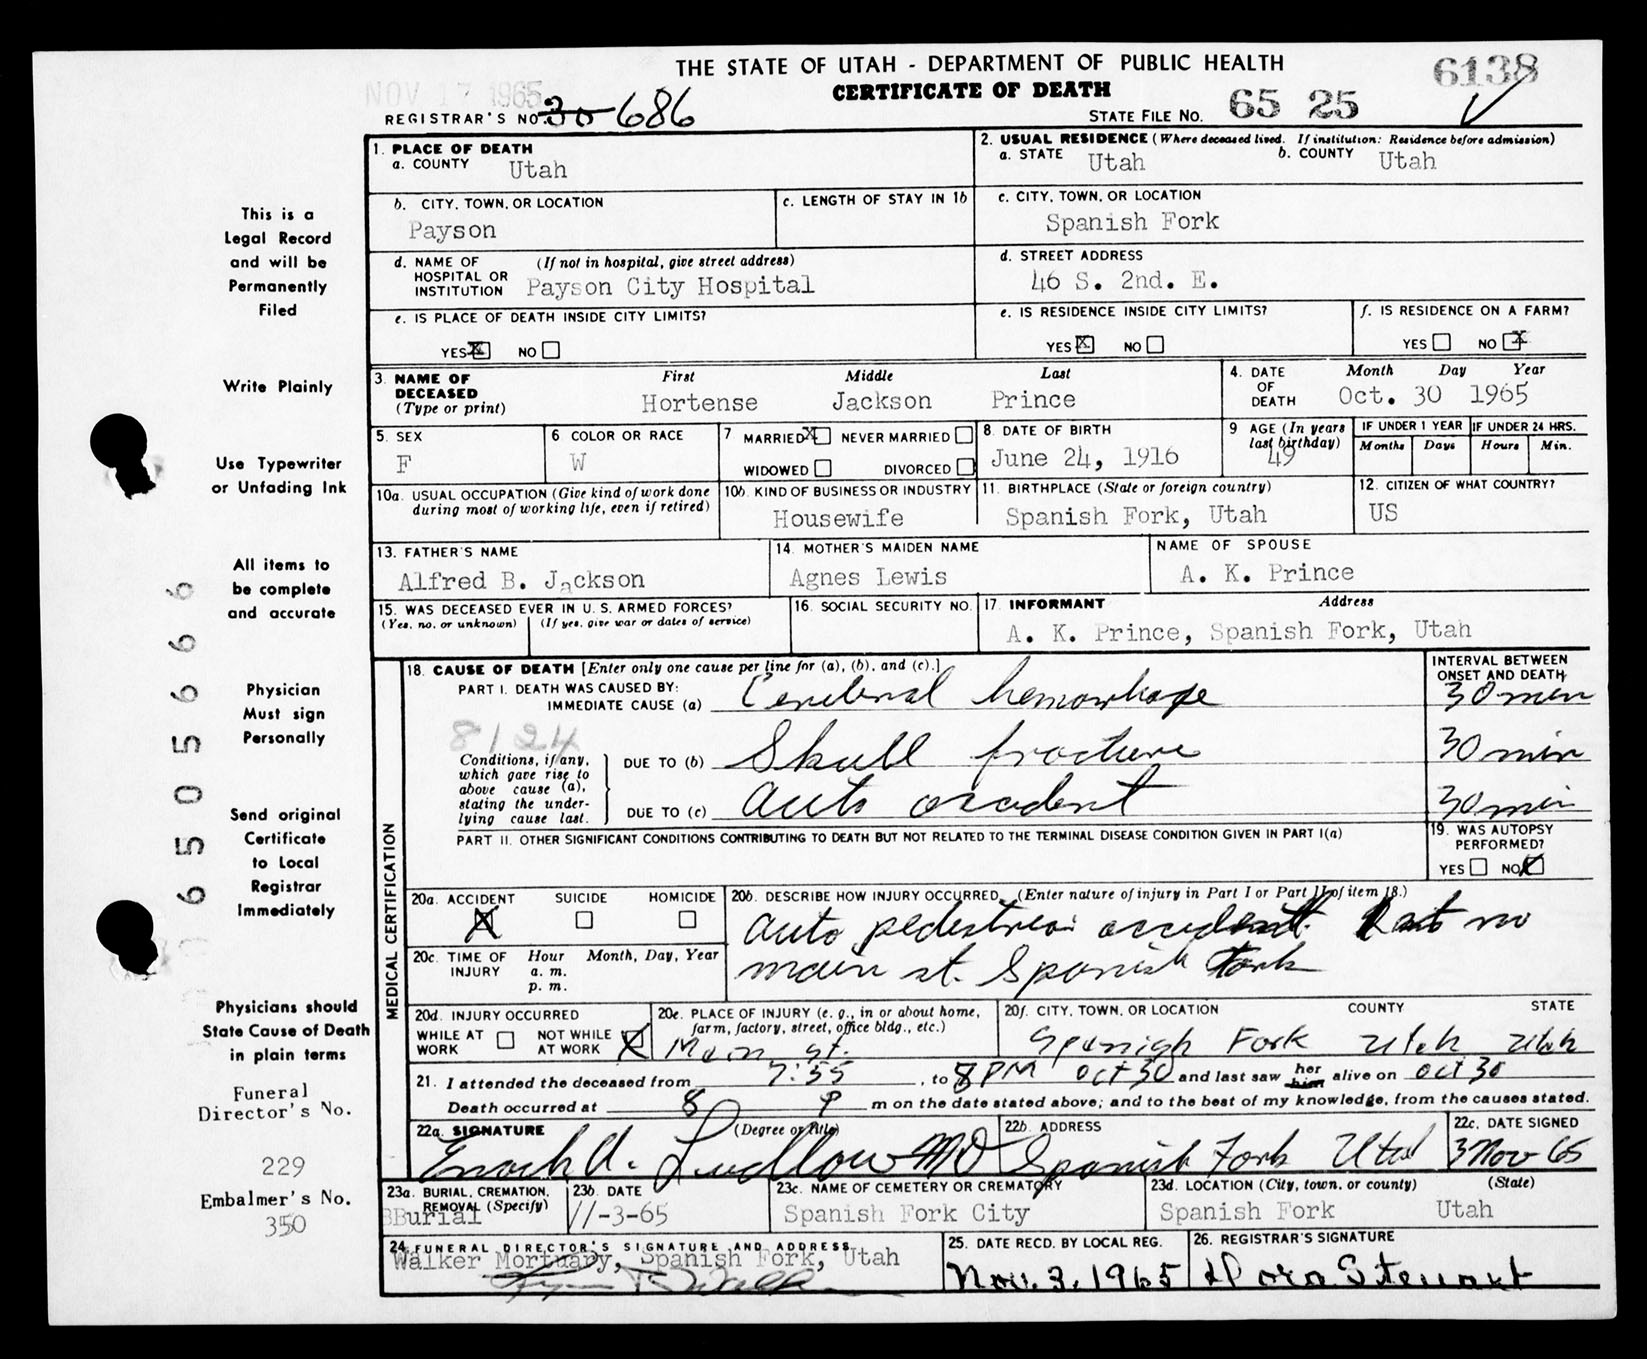 THE STATE OF UTAH - DEPARTMENT OF PUBLIC HEALTH
CERTIFICATE OF DEATH
6138
NOV 17 1965
REGISTRAR'S NO. 30 686
STATE FILE NO. 65 25
This is a
Legal Record
and will be
Permanently
Filed
Write Plainly
Use Typewriter
or Unfading Ink
All items to
be complete
and accurate
Physician
Must sign
Personally
Send original
Certificate
to Local
Registrar
Immediately
Physicians should
State Cause of Death
in plain terms
Funeral
Director's No.
229
Embalmer's No.
350
65056666
1. PLACE OF DEATH
a. COUNTY Utah
2. USUAL RESIDENCE (Where deceased lived. If institution: Residence before admission)
a. STATE Utah b. COUNTY Utah
b. CITY, TOWN, OR LOCATION
Payson
c. LENGTH OF STAY IN 1b
c. CITY, TOWN, OR LOCATION
Spanish Fork
d. NAME OF (If not in hospital, give street address)
HOSPITAL OR
INSTITUTION Payson City Hospital
d. STREET ADDRESS
46 S. 2nd. E.
e. IS PLACE OF DEATH INSIDE CITY LIMITS?
YES X NO
e. IS RESIDENCE INSIDE CITY LIMITS?
YES X NO
f. IS RESIDENCE ON A FARM?
YES NO X
3. NAME OF DECEASED (Type or print)
First Middle Last
Hortense Jackson Prince
4. DATE OF DEATH
Month Day Year
Oct. 30 1965
5. SEX
F
6 COLOR OR RACE
W
7 MARRIED X NEVER MARRIED
WIDOWED DIVORCED
8. DATE OF BIRTH
June 24, 1916
9 AGE (In years last birthday)
49
IF UNDER 1 YEAR IF UNDER 24 HRS.
Months Days Hours Min.
10a. USUAL OCCUPATION (Give kind of work done
during most of working life, even if retired)
10b. KIND OF BUSINESS OR INDUSTRY
Housewife
11. BIRTHPLACE (State or foreign country)
Spanish Fork, Utah
12. CITIZEN OF WHAT COUNTRY?
US
13. FATHER'S NAME
Alfred B. Jackson
14. MOTHER'S MAIDEN NAME
Agnes Lewis
NAME OF SPOUSE
A. K. Prince
15. WAS DECEASED EVER IN U.S. ARMED FORCES?
(Yes, no, or unknown) (If yes, give war or dates of service)
16. SOCIAL SECURITY NO.
17. INFORMANT Address
A. K. Prince, Spanish Fork, Utah
MEDICAL CERTIFICATION
18. CAUSE OF DEATH [Enter only one cause per line for (a), (b), and (c).]
INTERVAL BETWEEN
ONSET AND DEATH
PART I. DEATH WAS CAUSED BY:
IMMEDIATE CAUSE (a) Cerebral hemorrhage 30 min
8124
Conditions, if any,
which gave rise to
above cause (a),
stating the under-
lying cause last.
DUE TO (b) Skull fracture 30 min
DUE TO (c) auto accident 30 min
PART II. OTHER SIGNIFICANT CONDITIONS CONTRIBUTING TO DEATH BUT NOT RELATED TO THE TERMINAL DISEASE CONDITION GIVEN IN PART I(a)
19. WAS AUTOPSY
PERFORMED?
YES NO X
20a. ACCIDENT X SUICIDE HOMICIDE
20b. DESCRIBE HOW INJURY OCCURRED. (Enter nature of injury in Part I or Part II of item 18.)
auto pedestrian accident. no
main st. Spanish Fork
20c. TIME OF INJURY Hour Month, Day, Year
a. m.
p. m.
20d. INJURY OCCURRED
WHILE AT WORK NOT WHILE AT WORK X
20e. PLACE OF INJURY (e. g., in or about home,
farm, factory, street, office bldg., etc.)
Main st.
20f. CITY, TOWN, OR LOCATION COUNTY STATE
Spanish Fork Utah Utah
21. I attended the deceased from 7:55, to 8 PM Oct 30 and last saw her him alive on Oct 30
Death occurred at 8 P m on the date stated above; and to the best of my knowledge, from the causes stated.
22a. SIGNATURE (Degree or title)
Enoch A. Ludlow MD
22b. ADDRESS
Spanish Fork Utah
22c. DATE SIGNED
3 Nov 65
23a. BURIAL, CREMATION,
REMOVAL (Specify)
Burial
23b. DATE
11-3-65
23c. NAME OF CEMETERY OR CREMATORY
Spanish Fork City
23d. LOCATION (City, town, or county) (State)
Spanish Fork Utah
24. FUNERAL DIRECTOR'S SIGNATURE AND ADDRESS
Walker Mortuary, Spanish Fork, Utah
25. DATE RECD. BY LOCAL REG.
Nov. 3, 1965
26. REGISTRAR'S SIGNATURE
Dora Stewart